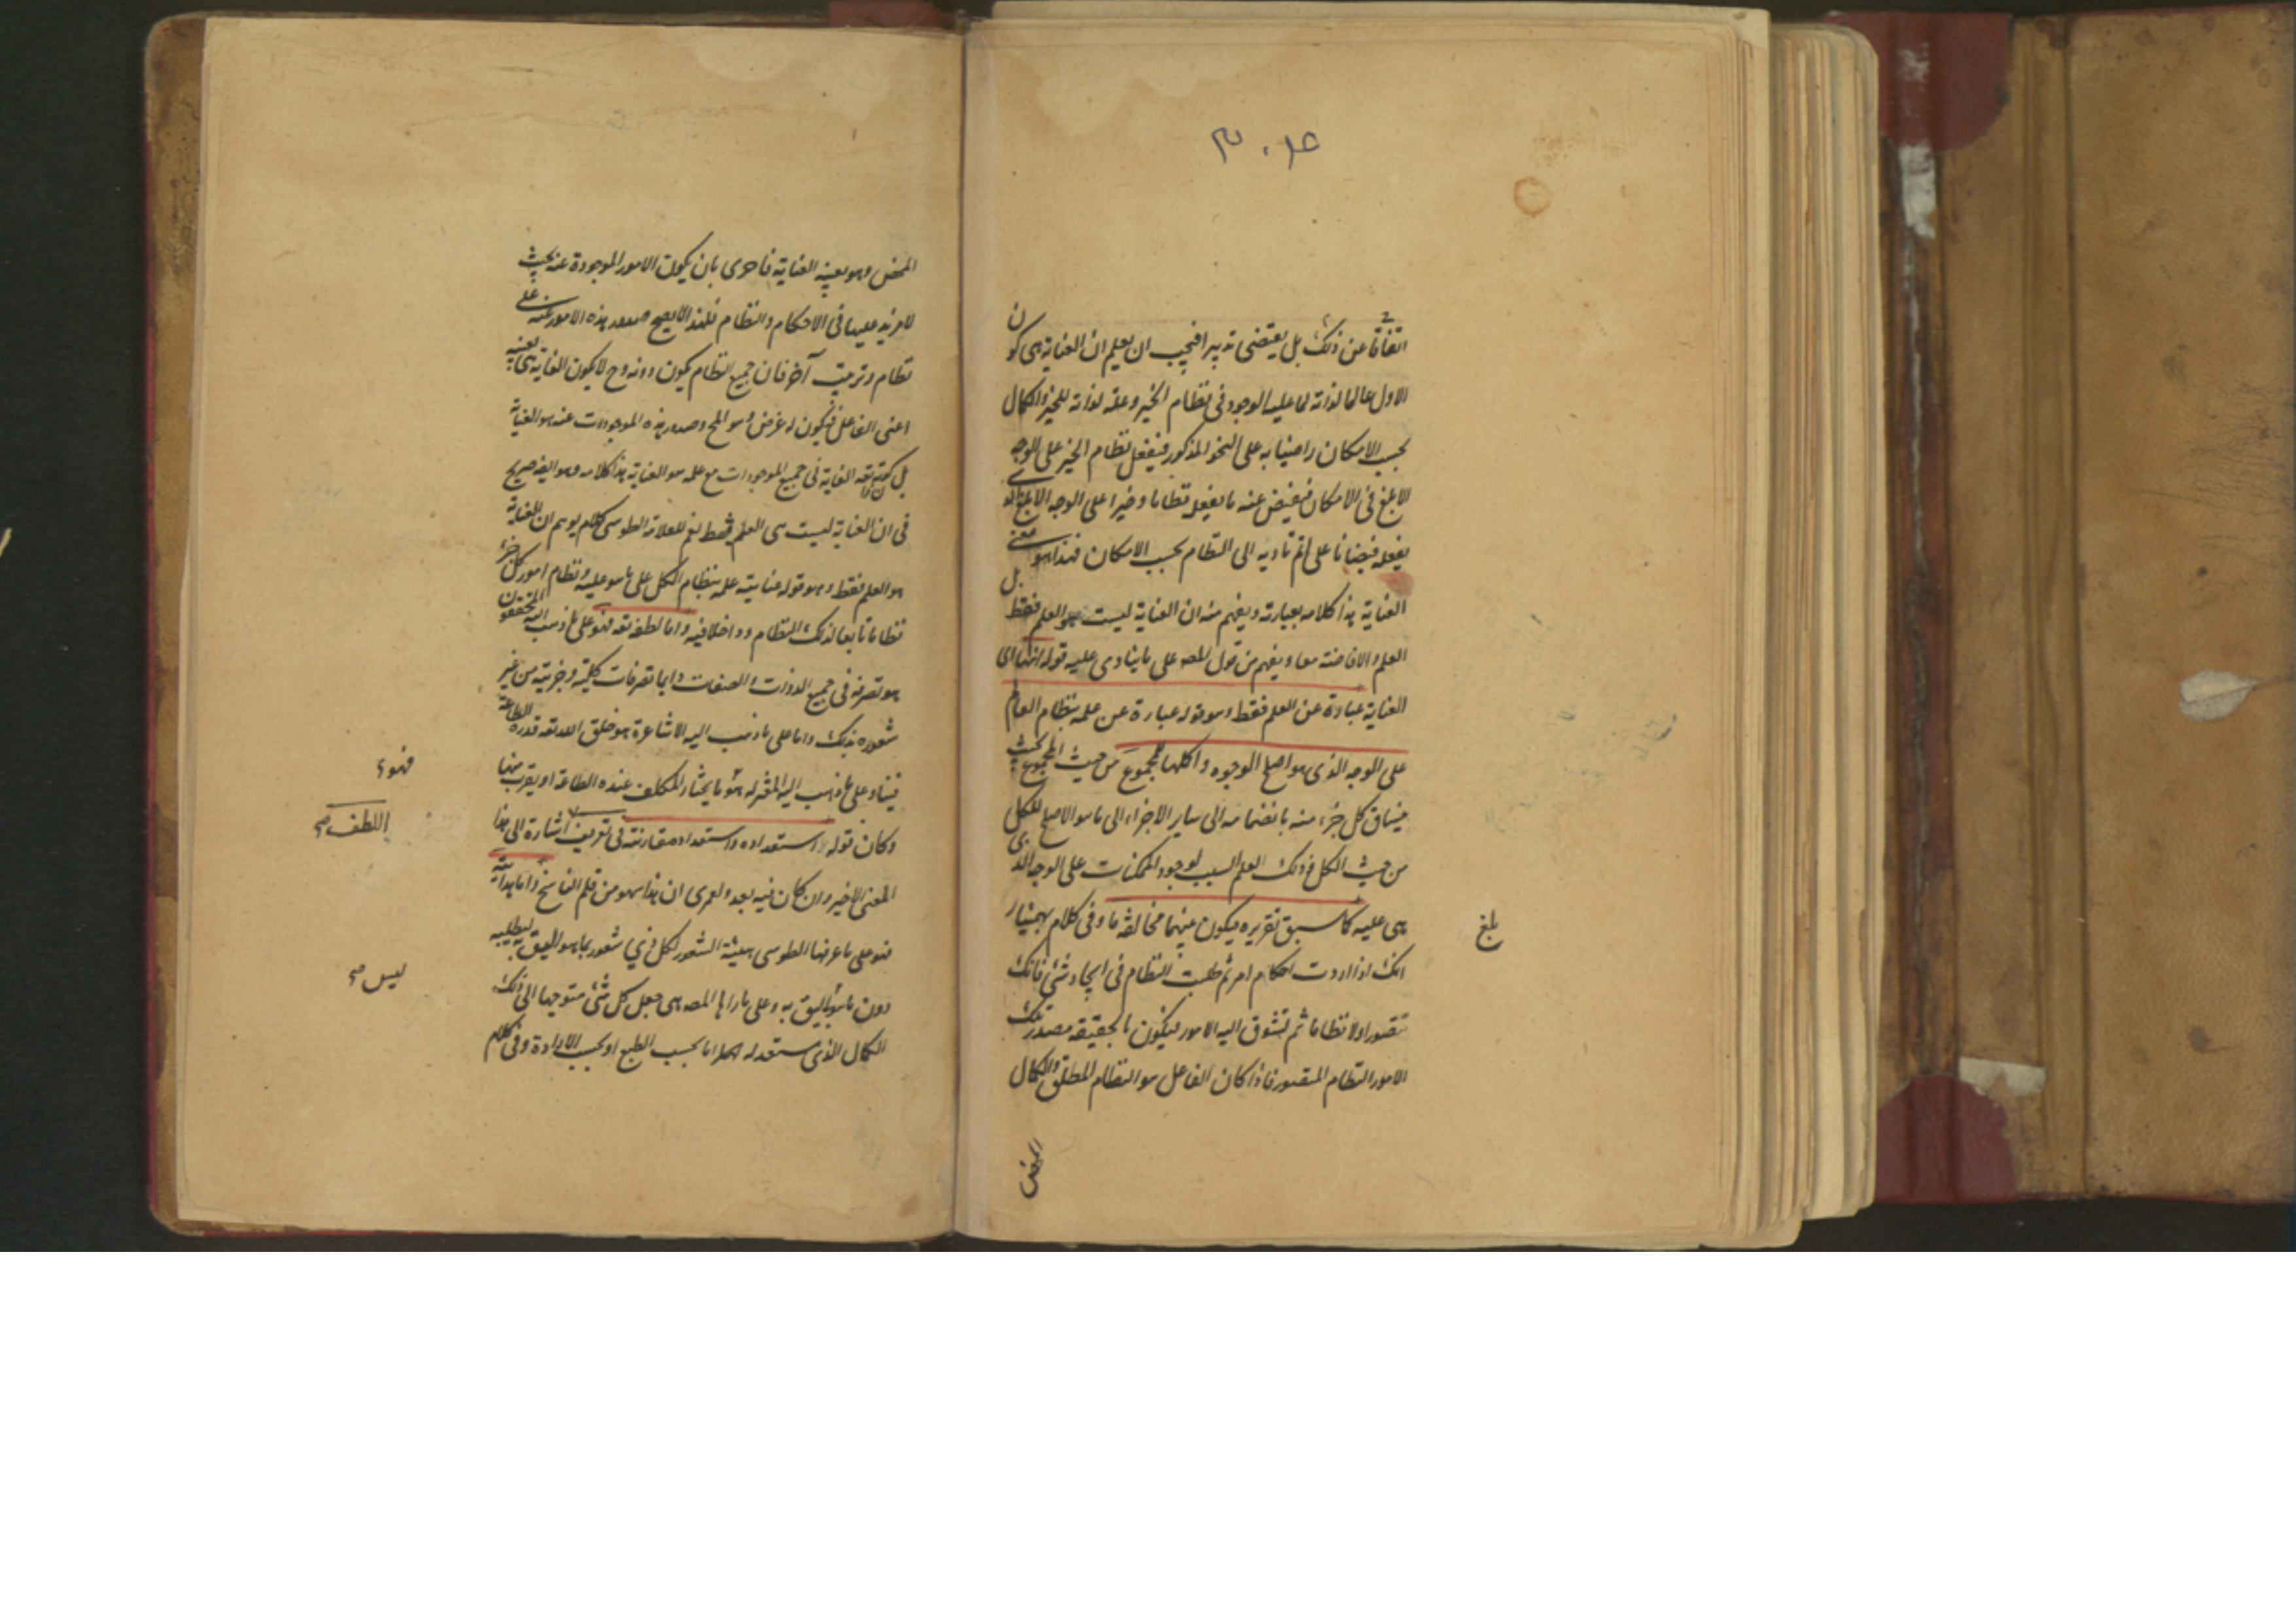 اتفاقا عن ذلك بل يقتضى تدبيرا فيجب ان يعلم ان العناية هى كون
الاول عالما لذاته لما عليه الوجود فى نظام الخير وعلة لذاته للخير والكمال
بحسب الامكان راضيا به على النحو المذكور فيعقل نظام الخير على الوجه
الابلغ فى الامكان فيفيض عنه ما يعقله نظاما وخيرا على الوجه الابلغ الذى
يعقله فيضانا على اتم تاديه الى النظام بحسب الامكان فهذا هو معنى
العناية هذا كلامه بعبارته ويفهم منه ان العناية ليست هو العلم فقط بل
العلم والافاضة معا ويفهم من قول المصه على ما ينادى عليه قوله انتهاى
العناية عبارة عن العلم فقط وهو قوله عبارة عن علمه بنظام العام
على الوجه الذى هو اصلح الوجوه واكملها للمجموع من حيث المجموع بحيث
ينساق كل جزء منه بانضمامه الى ساير الاجزاء الى ما هو الاصلح للكل
من حيث الكل فذلك العلم السبب لوجود الممكنات على الوجه الذى
هى عليه كما سبق تقريره فيكون بينهما مخالفة ما وفى كلام بهمنيار
بلغ
انك اذا اردت احكام امر ثم طلبت النظام فى ايجاد شئ فانك
تتصور اولا نظاما ثم تشوق اليه الامور فيكون بالحقيقة مصدر تلك
الامور النظام المتصور فاذا كان الفاعل هو النظام المطلق والكمال
المحض
المحض وهو بعينه العناية فاحرى بان يكون الامور الموجودة عنه بحيث
لا مزيد عليها فى الاحكام والنظام فلهذا لا يصح صدور هذه الامور عنه على
نظام وترتيب آخر فان جميع النظام يكون دونه وح لا يكون الغاية هى بعينه
اعنى الفاعل فيكون له غرض وهو المح وصدور هذه الموجودات عنه هو العناية
بل كون ذاته الغاية فى جميع الموجودات مع علمه هو العناية هذا كلامه وهو ايضه صريح
فى ان العناية ليست هى العلم فقط نعم للعلامة الطوسى كلام يوهم ان العناية
هو العلم فقط وهو قوله عنايته علمه بنظام الكل على ما هو عليه ونظام امور كل جزء
نظاما تابعا لذلك النظام وداخلا فيه واما لطفه تعه فهو على ما ذهب اليه المحققون
هو تصرفه فى جميع الذوات والصفات دايما تصرفات كلية وجزئية من غير
شعوره بذلك واما على ما ذهب اليه الاشاعرة هو خلق الله تعه قدرة الطاعة
فهو
فينا وعلى ما ذهب اليه المعتزله هو ما يختار المكلف عنده الطاعة او يقرب منها
اللطف صح
وكان قوله استعداده واستعداد مقارنته فى تعريف اشارة الى هذا
المعنى الاخير وان كان فيه بعد ولعمرى ان هذا سهو من قلم الناسخ واما هدايته
فهو على ما عرفها الطوسى هيئة الشعور لكل ذى شعور بما هو اليق به ليطلبه
ليس صح
دون ما هو اليق به وعلى ما رآها المصه هى جعل كل شئ متوجها الى ذلك
الكمال الذى مستعد له اما بحسب الطبع او بحسب الارادة وفى كلام